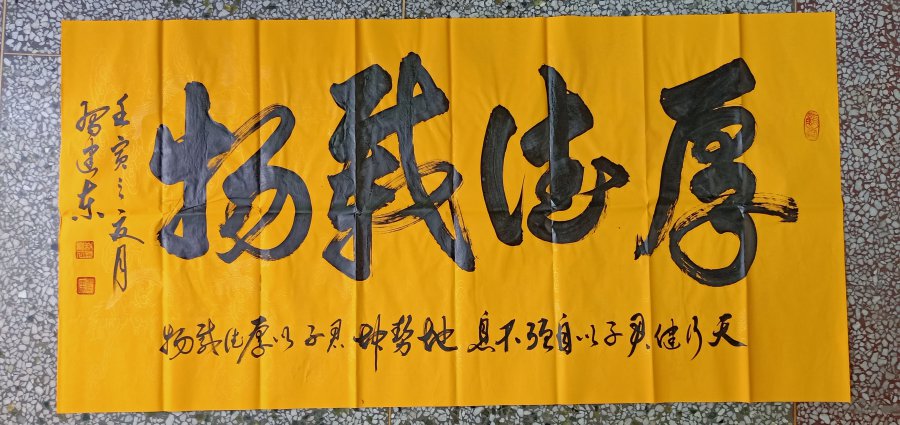 厚德载物
天行健君子以自强不息 地势坤君子以厚德载物
壬寅之夏月
建东